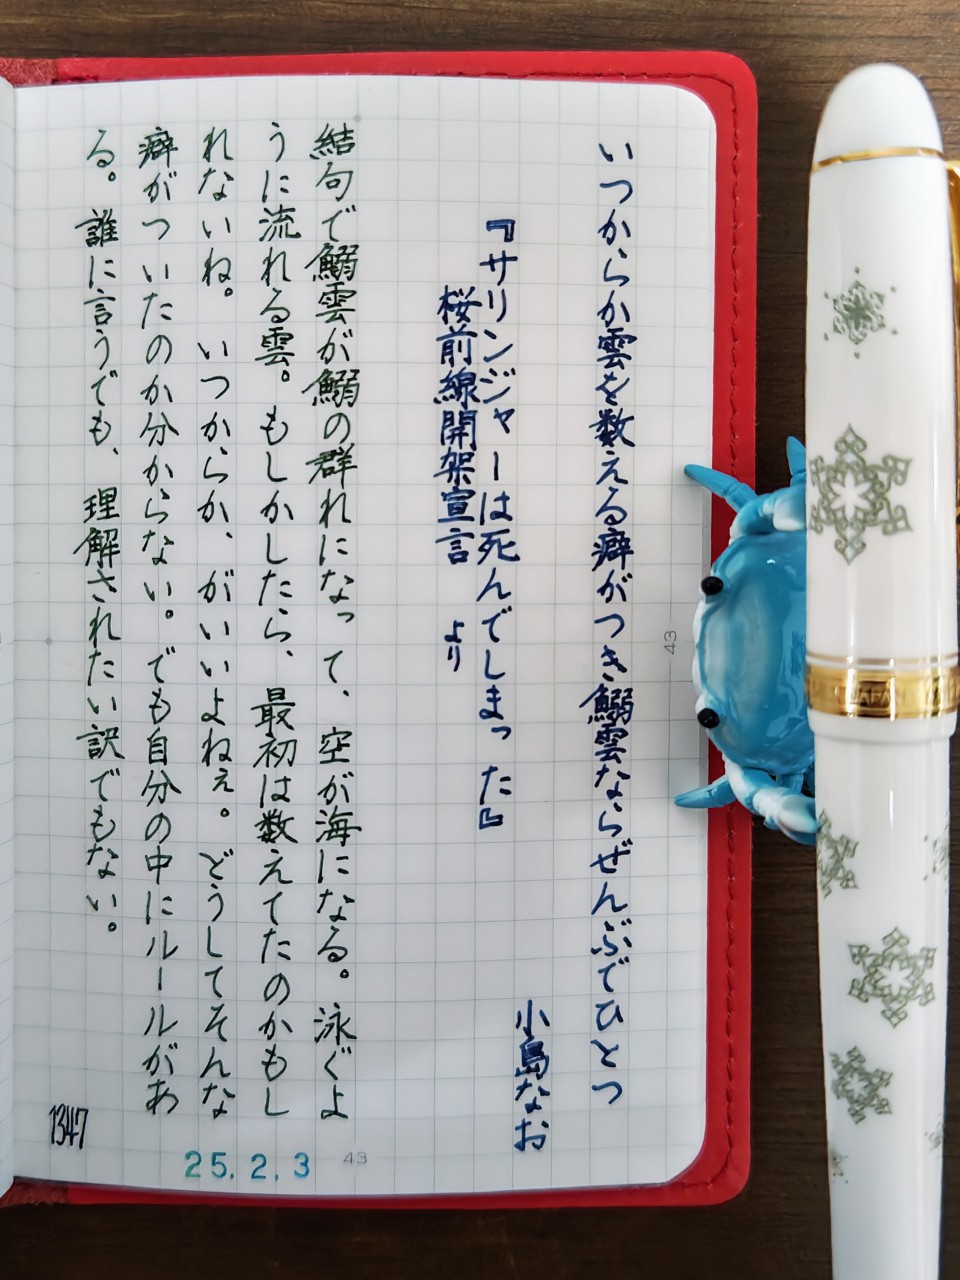 いつからか雲を数える癖がつき鰯雲ならぜんぶでひとつ
小島なお
『サリンジャーは死んでしまった』
桜前線開架宣言 より
結句で鰯雲が鰯の群れになって、空が海になる。泳ぐよ
うに流れる雲。もしかしたら、最初は数えてたのかもし
れないね。いつからか、がいいよねぇ。どうしてそんな
癖がついたのか分からない。でも自分の中にルールがあ
る。誰に言うでも、理解されたい訳でもない。
1347
25.2.3
43
43
JAPAN